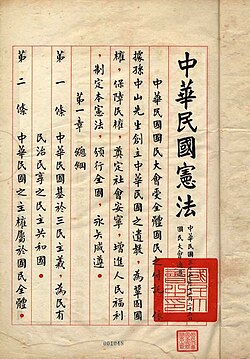 中華民國憲法
中華民國
國民大會
中華民國國民大會受全體國民之付託，依
據孫中山先生創立中華民國之遺教，為鞏固國
權，保障民權，奠定社會安寧，增進人民福利
，制定本憲法，頒行全國，永矢咸遵。
第一章 總綱
第一條 中華民國基於三民主義，為民有
民治民享之民主共和國。
第二條 中華民國之主權屬於國民全體。
001048